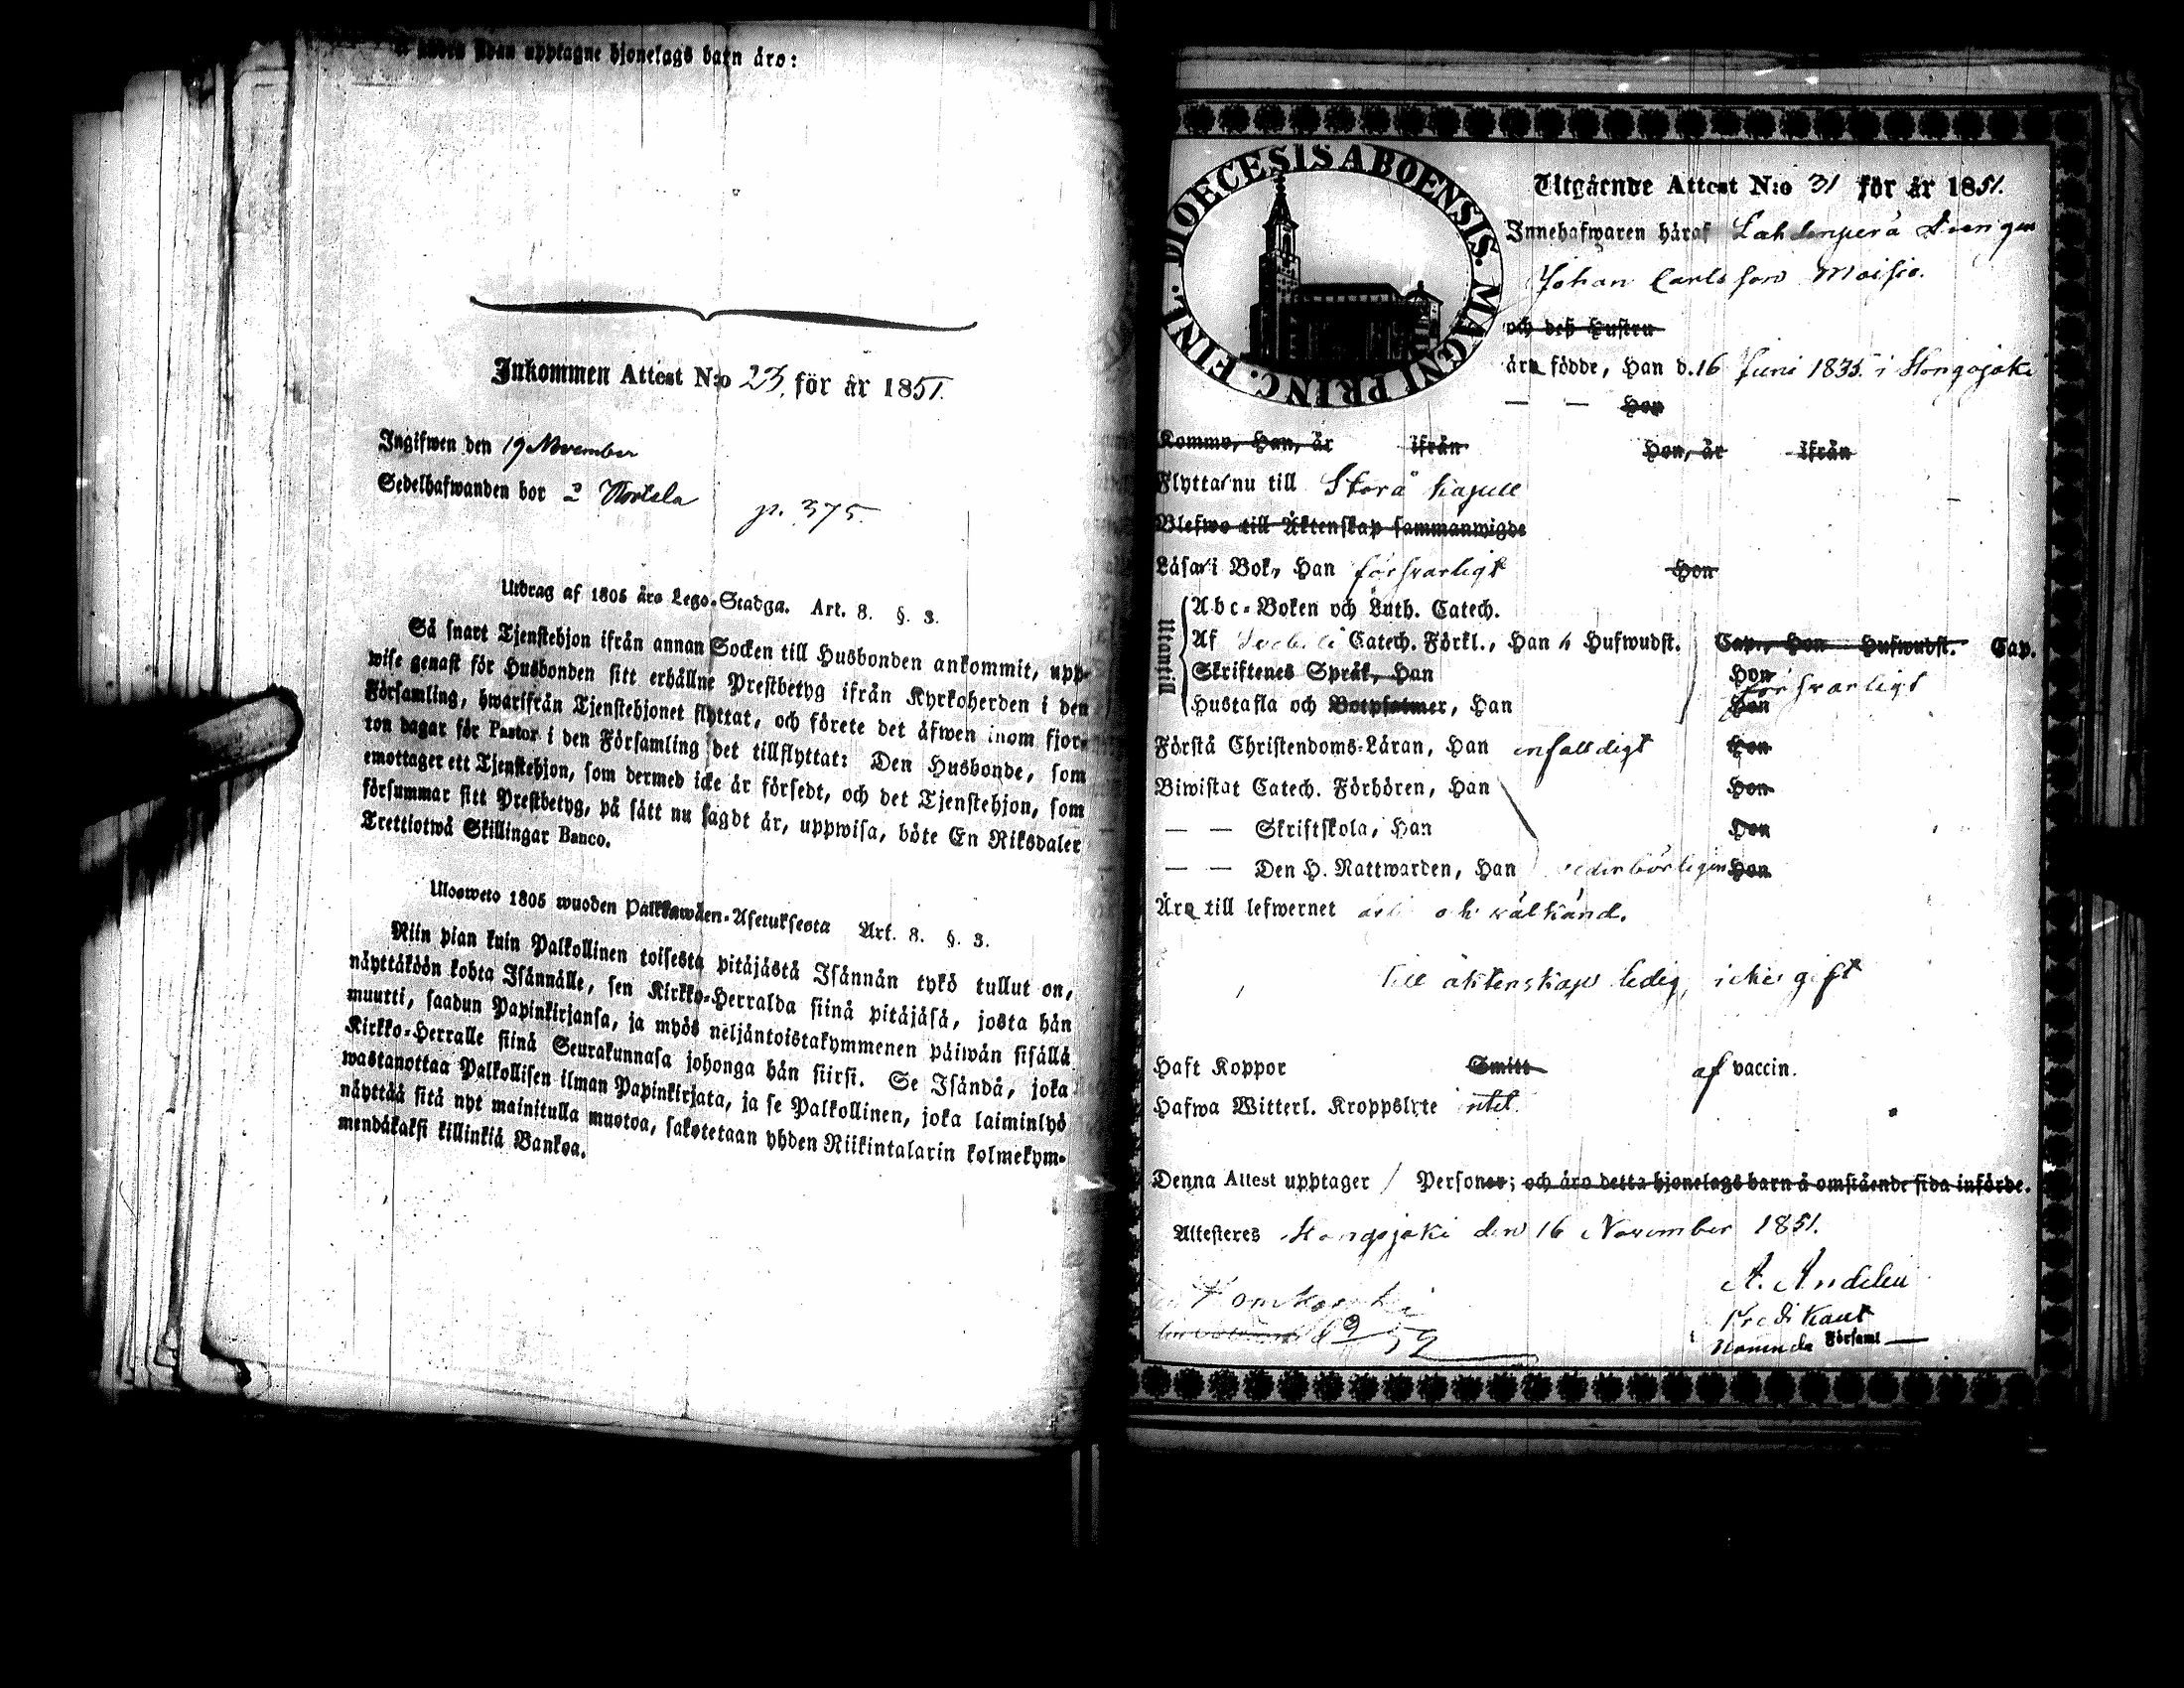 upptagne hjonelags barn äro:
Inkommen Attest N:o 23. för år 1851.
Ingifwen den 19 November
Sedelhafwanden bor
p. 375.
Utdrag af 1805 års Lego-Stadga. Art. 8. §. 3.
Så snart Tjenstehjon ifrån annan Socken till Husbonden ankommit, upp-
wise genast för Husbonden sitt erhållne Prestbetyg ifrån Kyrkoherden i den
Församling, hwarifrån Tjenstehjonet flyttat, och förete det äfwen inom fjor-
ton dagar för Pastor i den Församling det tillflyttat: Den Husbonde, som
emottager ett Tjenstehjon, som dermed icke är försedt, och det Tjenstehjon, som
försummar sitt Prestbetyg, på sätt nu sagdt är, uppwisa, böte En Riksdaler
Trettiotwå Skillingar Banco.
Ulosweto 1805 wuoden Palkkawäen-Asetuksesta Art. 8. §. 3.
Niin pian kuin Palkollinen toisesta pitäjästä Isännän tykö tullut on,
näyttäköön kohta Isännälle, sen Kirkko-Herralda siinä pitäjäsä, josta hän
muutti, saadun Papinkirjansa, ja myös neljäntoistakymmenen päiwän sisällä
Kirkko-Herralle siinä Seurakunnasa johonga hän siirsi. Se Isändä, joka
wastanottaa Palkollisen ilman Papinkirjata, ja se Palkollinen, joka laiminlyö
näyttää sitä nyt mainitulla muotoa, sakotetaan yhden Riikintalarin kolmekym-
mendäkaksi killinkiä Bankoa.
DIOECESIS ABOENSIS. MAGNI PRINC. FINL.
Utgående Attest N:o 31 för år 1851.
Innehafwaren häraf Lahdenperä Drengen
Johan Carlsson Moisio.
och deß Hustru
äro födde, Han d. 16 Juni 1835. i Hongojoki
— — Hon
Kommo, Han, år ifrån Hon, år ifrån
Flyttar nu till Storå Kapell
Blefwo till Äktenskap sammanwigde
Läsa i Bok, Han försvarligt Hon
Utantill
Abc-Boken och Luth. Catech.
Af Catech. Förkl., Han 4 Hufwudst. Cap., Hon Hufwudst. Cap.
Skriftenes Språk, Han Hon
försvarligt
Hustafla och Botpsalmer, Han Hon
Förstå Christendoms-Läran, Han enfaldigt Hon
Biwistat Catech. Förhören, Han Hon
— — Skriftskola, Han Hon
— — Den H. Nattwarden, Han wederbörligen Hon
Äro till lefwernet ärlig och välkänd.
Till äktenskap ledig, icke gift
Haft Koppor Smitt af vaccin.
Hafwa Witterl. Kroppslyte intet
Denna Attest upptager 1 Personer; och äro detta hjonelags barn å omstående sida införde.
Attesteres Hongojoki den 16 November 1851.
A. Andelin
Predikant
i Församl